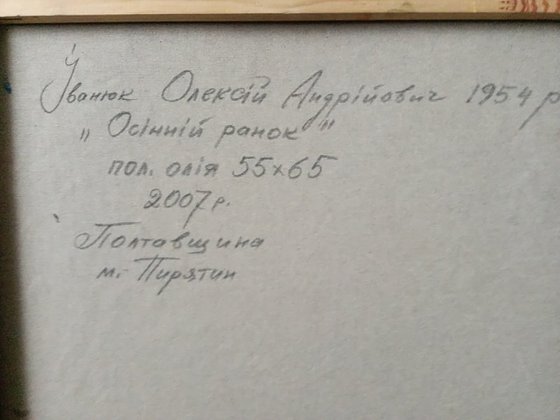 Іванюк Олексій Андрійович 1954 р
„ Осінній ранок "
пол. олія 55х65
2007 р.
Полтавщина
м. Пирятин